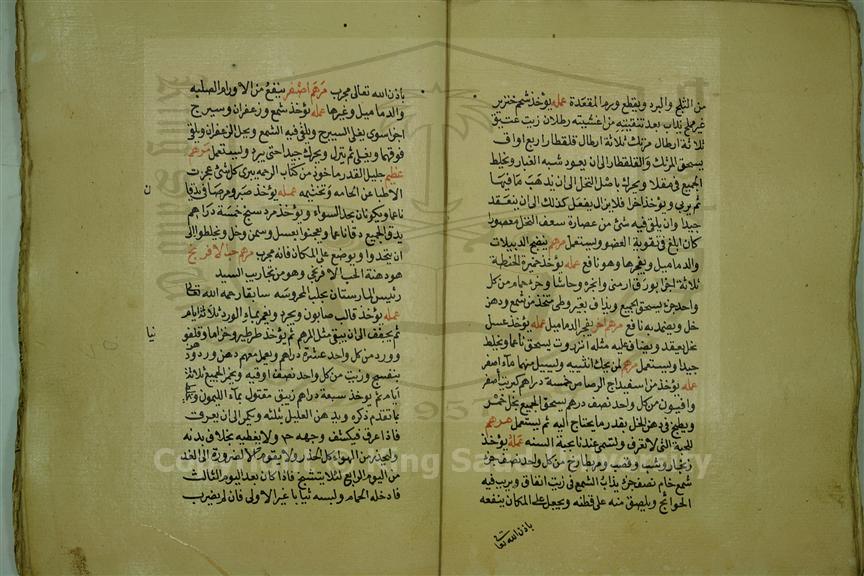 من الثلج والبرد وينقطع وبرها المقعدة عمله يؤخذ شحم خنزير
غير مملح يذاب بعد تنقيته من اغشيته رطلان زيت عتيق
ثلاثة ارطال مرتك ثلاثة ارطال قلقطار اربع اواق
يسحق المرتك والقلقطار الى ان يعود شبه الغبار ويخلط
الجميع في مقلا ويحرك باصل النخل الى ان يذهب ما فيها
ثم يرمى ويؤخذ اخر فلا يزال يفعل كذلك الى ان ينعقد
جيدا وان يلقى فيه شئ من عصارة سعف النخل معصورا
كان ابلغ في تقوية العضو ويستعمل مرهم ينضج الدبيلات
والدماميل ويفجرها وهو نافع عمله يؤخذ خميرة الحنطة
ثلاثة اجزا بورق ارمني وانجره وحاشا وخرء حمام من كل
واحد جزء يسحق الجميع ويداف بقيروطي متخذ من شمع ودهن
خل ويضمد به نافع مرهم اخر يفجر الدماميل عمله يؤخذ عسل
نحل يعقد ويضاف عليه مثله انزروت يسحق ناعما ويخلط
جيدا ويستعمل مرهم لمن يحك انثييه ويسيل منها ماء اصفر
عمله يؤخذ من اسفيداج الرصاص خمسة دراهم كبريت اصفر
وافيون من كل واحد نصف درهم يسحق الجميع بخل خمر
ويطبخ في دهن الخل بقدر ما يحتاج اليه ثم يستعمل مرهم
للحبة التي لا تعرف وتسمى عندنا بحبة السنه عمله يؤخذ
زنجار وشب من كل واحد نصف جزء
شمع خام نصف جزء يذاب الشمع في زيت انفاق ويرب فيه
الحوائج ويلصق منه على قطنه ويجعل على المكان ينفعه
باذن الله تعالى
باذن الله تعالى مجرب مرهم اصفر ينفع من الاورام الصلبه
والدماميل وغيرها عمله يؤخذ شمع وزعفران وسيرج
اجزا سوى يغلى السيرج ويلقى فيه الشمع ويحل الزعفران ويلقى
فوقهما ويغلى ثم ينزل ويحرك جيدا حتى يبرد ويستعمل مرهم
عظيم جليل القدر ماخوذ من كتاب الرحمه يبرى كل شئ عجزت
الاطبا عن الحامه عمله يؤخذ صبر ومر صافي يدقا
ناعما ويكونان بحد السواء ويؤخذ مرد سنج خمسة دراهم
يدق الجميع دقا ناعما ويعجنوا بعسل وسمن وخل ويخلطوا الى
ان يتحدوا ويوضع على المكان فانه مجرب مرهم حب الافرنج
هو دهنة الحب الافرنجي وهو من تجاريب السيد
رئيس المارستان بحلب المحروسه سابقا رحمه الله تعالى
عمله يؤخذ قالب صابون ويجرد ويغمر بماء الورد ثلاثة ايام
ثم يجفف الى ان يبقى مثل المرهم ثم يؤخذ طرطير وخزاما وقلفو
وورد من كل واحد عشرة دراهم ويعمل معهم دهن ورد ودهن
بنفسج وزيت من كل واحد نصف اوقيه ويخمر الجميع ثلاثة
ايام ثم يؤخذ سبعة دراهم زيبق مقتول بماء الليمون
بما تقدم ذكره ويدهن العليل بثلثه ويكمر الى ان يعرق
فاذا عرق فيكشف وجهه ولا يغطيه بخلاف بدنه
وليحذر من الهواء كل الحذر ولا يقوم الا لضرورة الى الغد
من اليوم الرابع لئلا يتشنج فاذا كان بعد اليوم الثالث
فادخله الحمام ولبسه ثيابا غير الاولى فان لم يضرب
Copyright © King Saud University